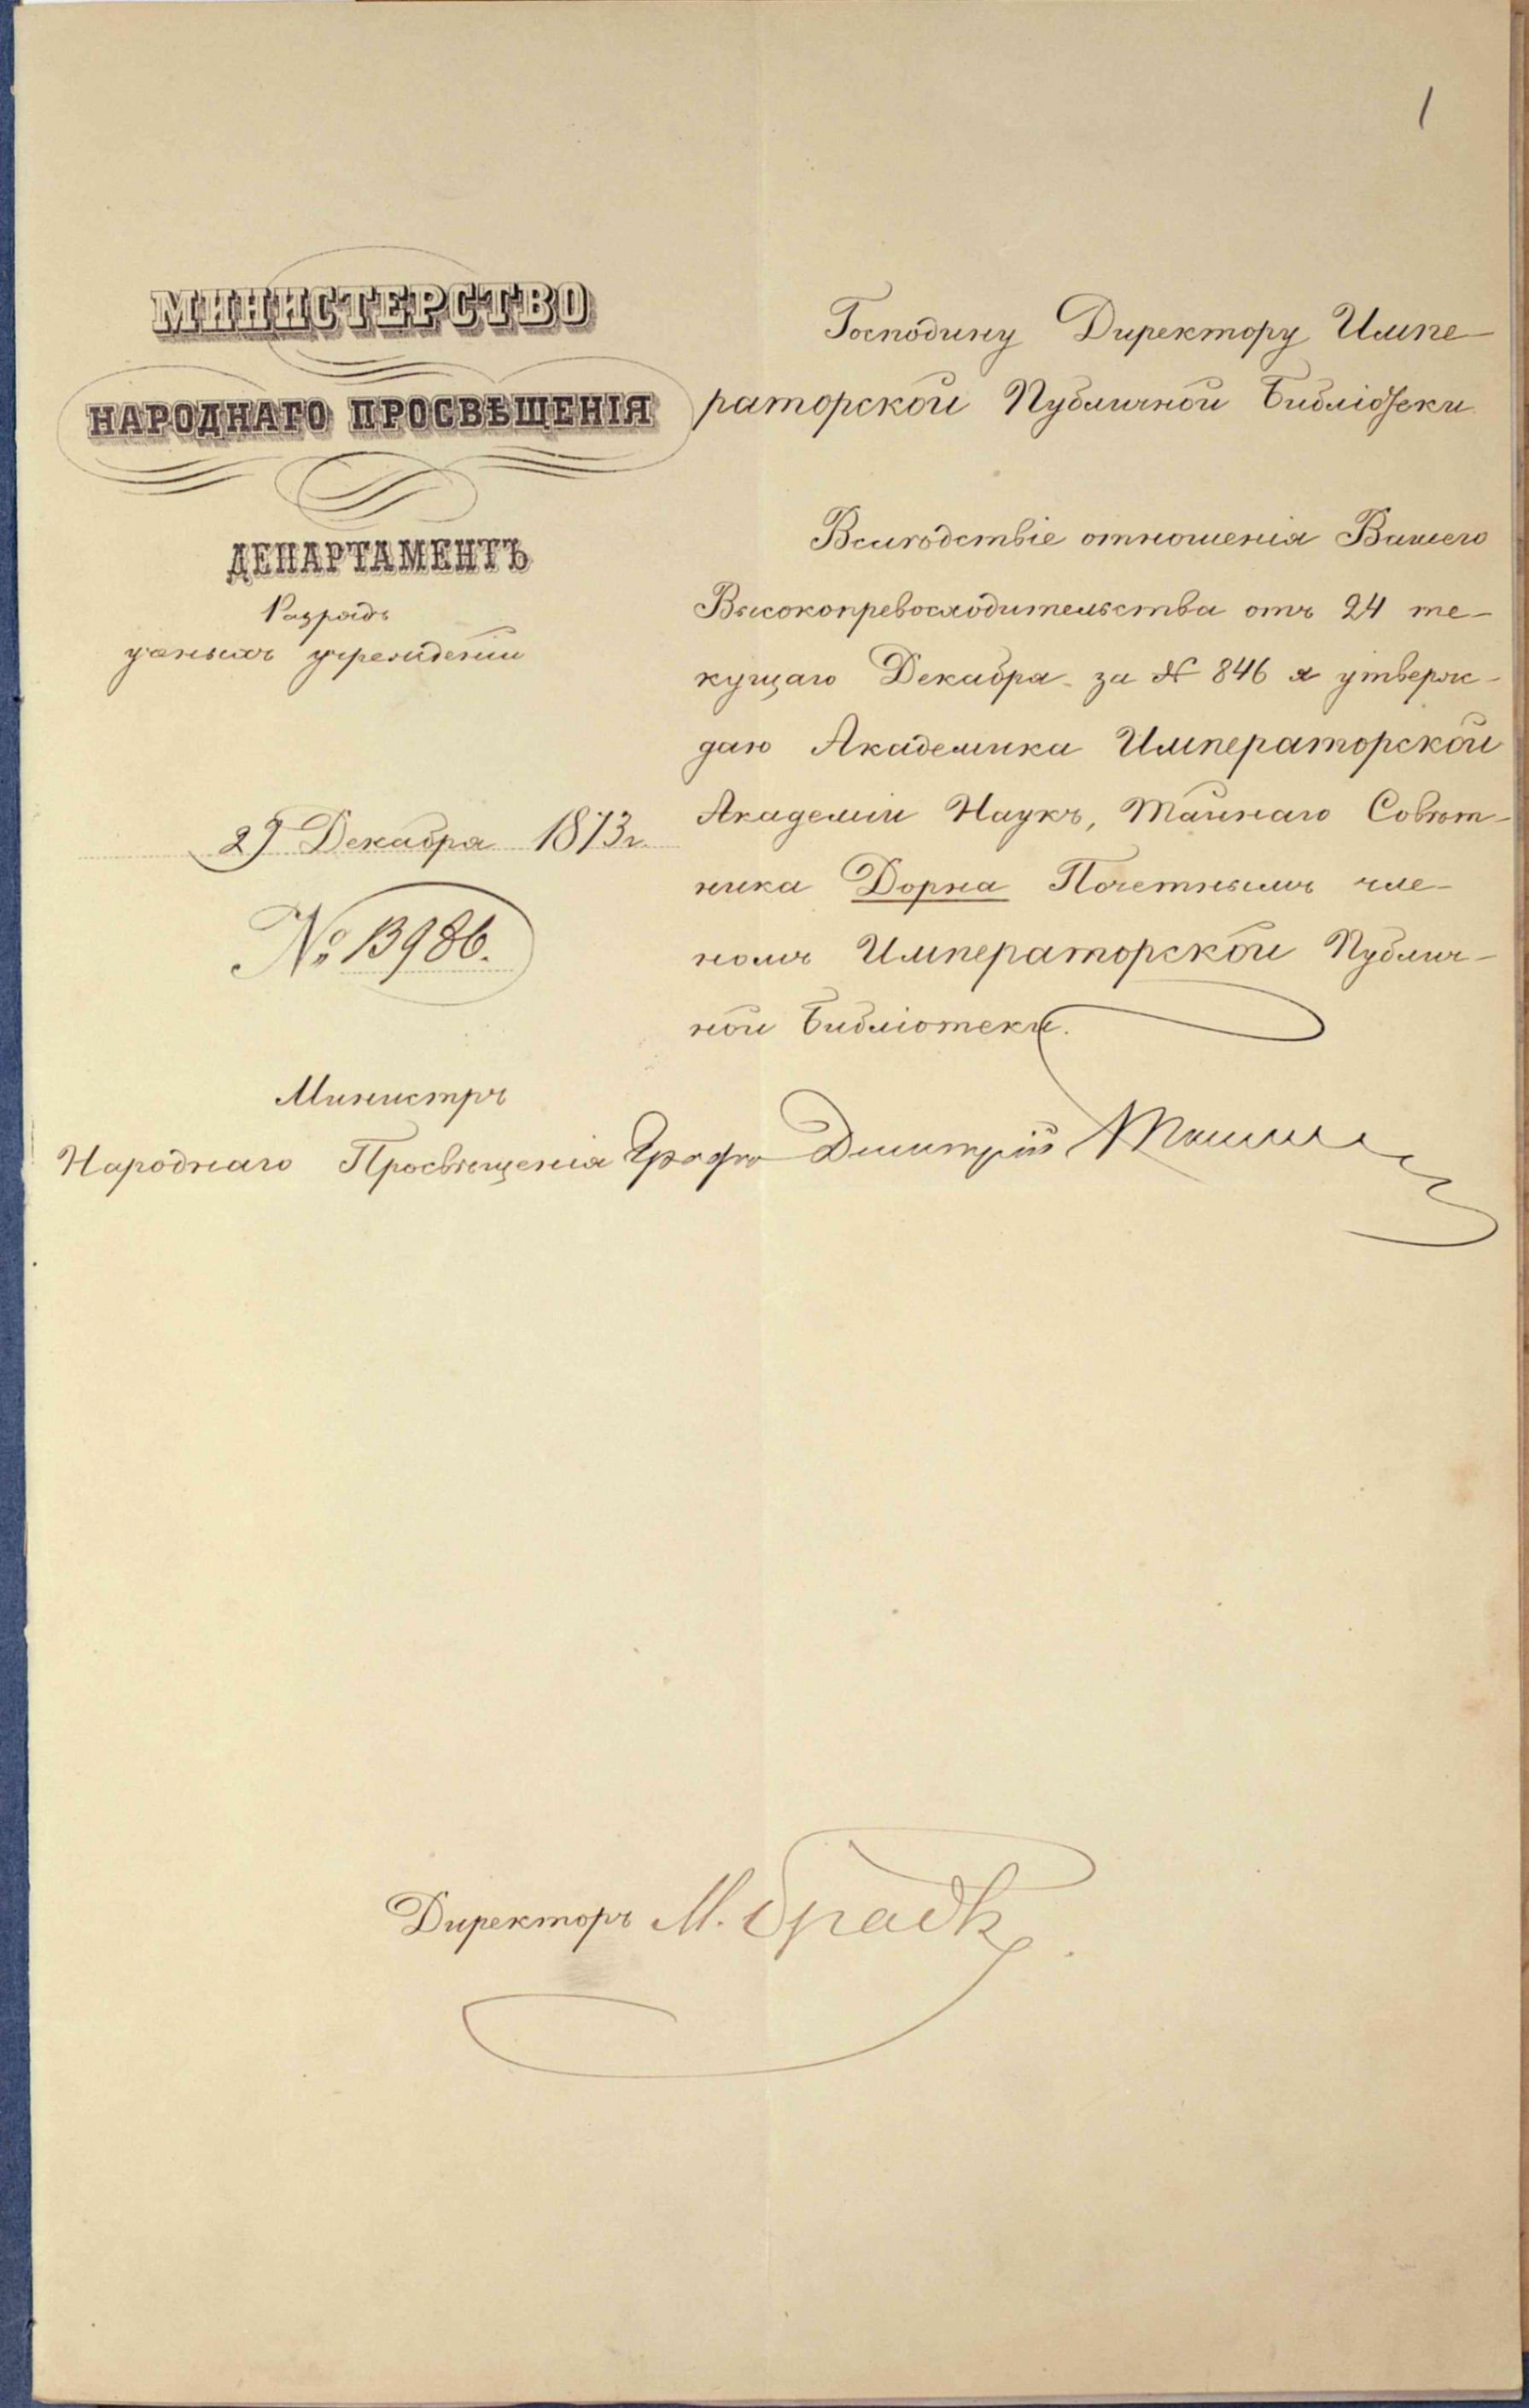 1
МИНИСТЕРСТВО
НАРОДНАГО ПРОСВѢЩЕНІЯ
ДЕПАРТАМЕНТЪ
Разрядъ
ученыхъ учрежденій
29 Декабря 1873 г.
№ 13986.
Господину Директору Импе-
раторской Публичной Библіотеки
Вслѣдствіе отношенія Вашего
Высокопревосходительства отъ 24 те-
кущаго Декабря за № 846 я утверж-
даю Академика Императорской
Академіи Наукъ, Тайнаго Совѣт-
ника Дорна Почетнымъ чле-
номъ Императорской Публич-
ной Библіотеки.
Министръ
Народнаго Просвѣщенія Графъ Дмитрій Толстой
Директоръ М.